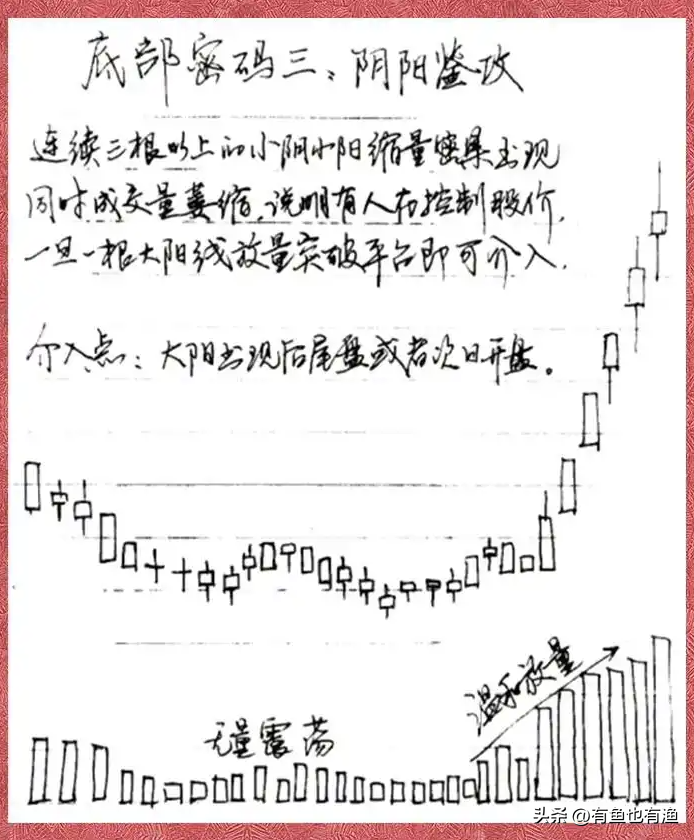 底部密码三：阴阳鉴攻
连续三根以上的小阴小阳缩量密集出现
同时成交量萎缩，说明有人在控制股价，
一旦一根大阳线放量突破平台即可介入．
介入点：大阳出现后尾盘或者次日开盘。
温和放量
无量震荡
头条 @有鱼也有渔